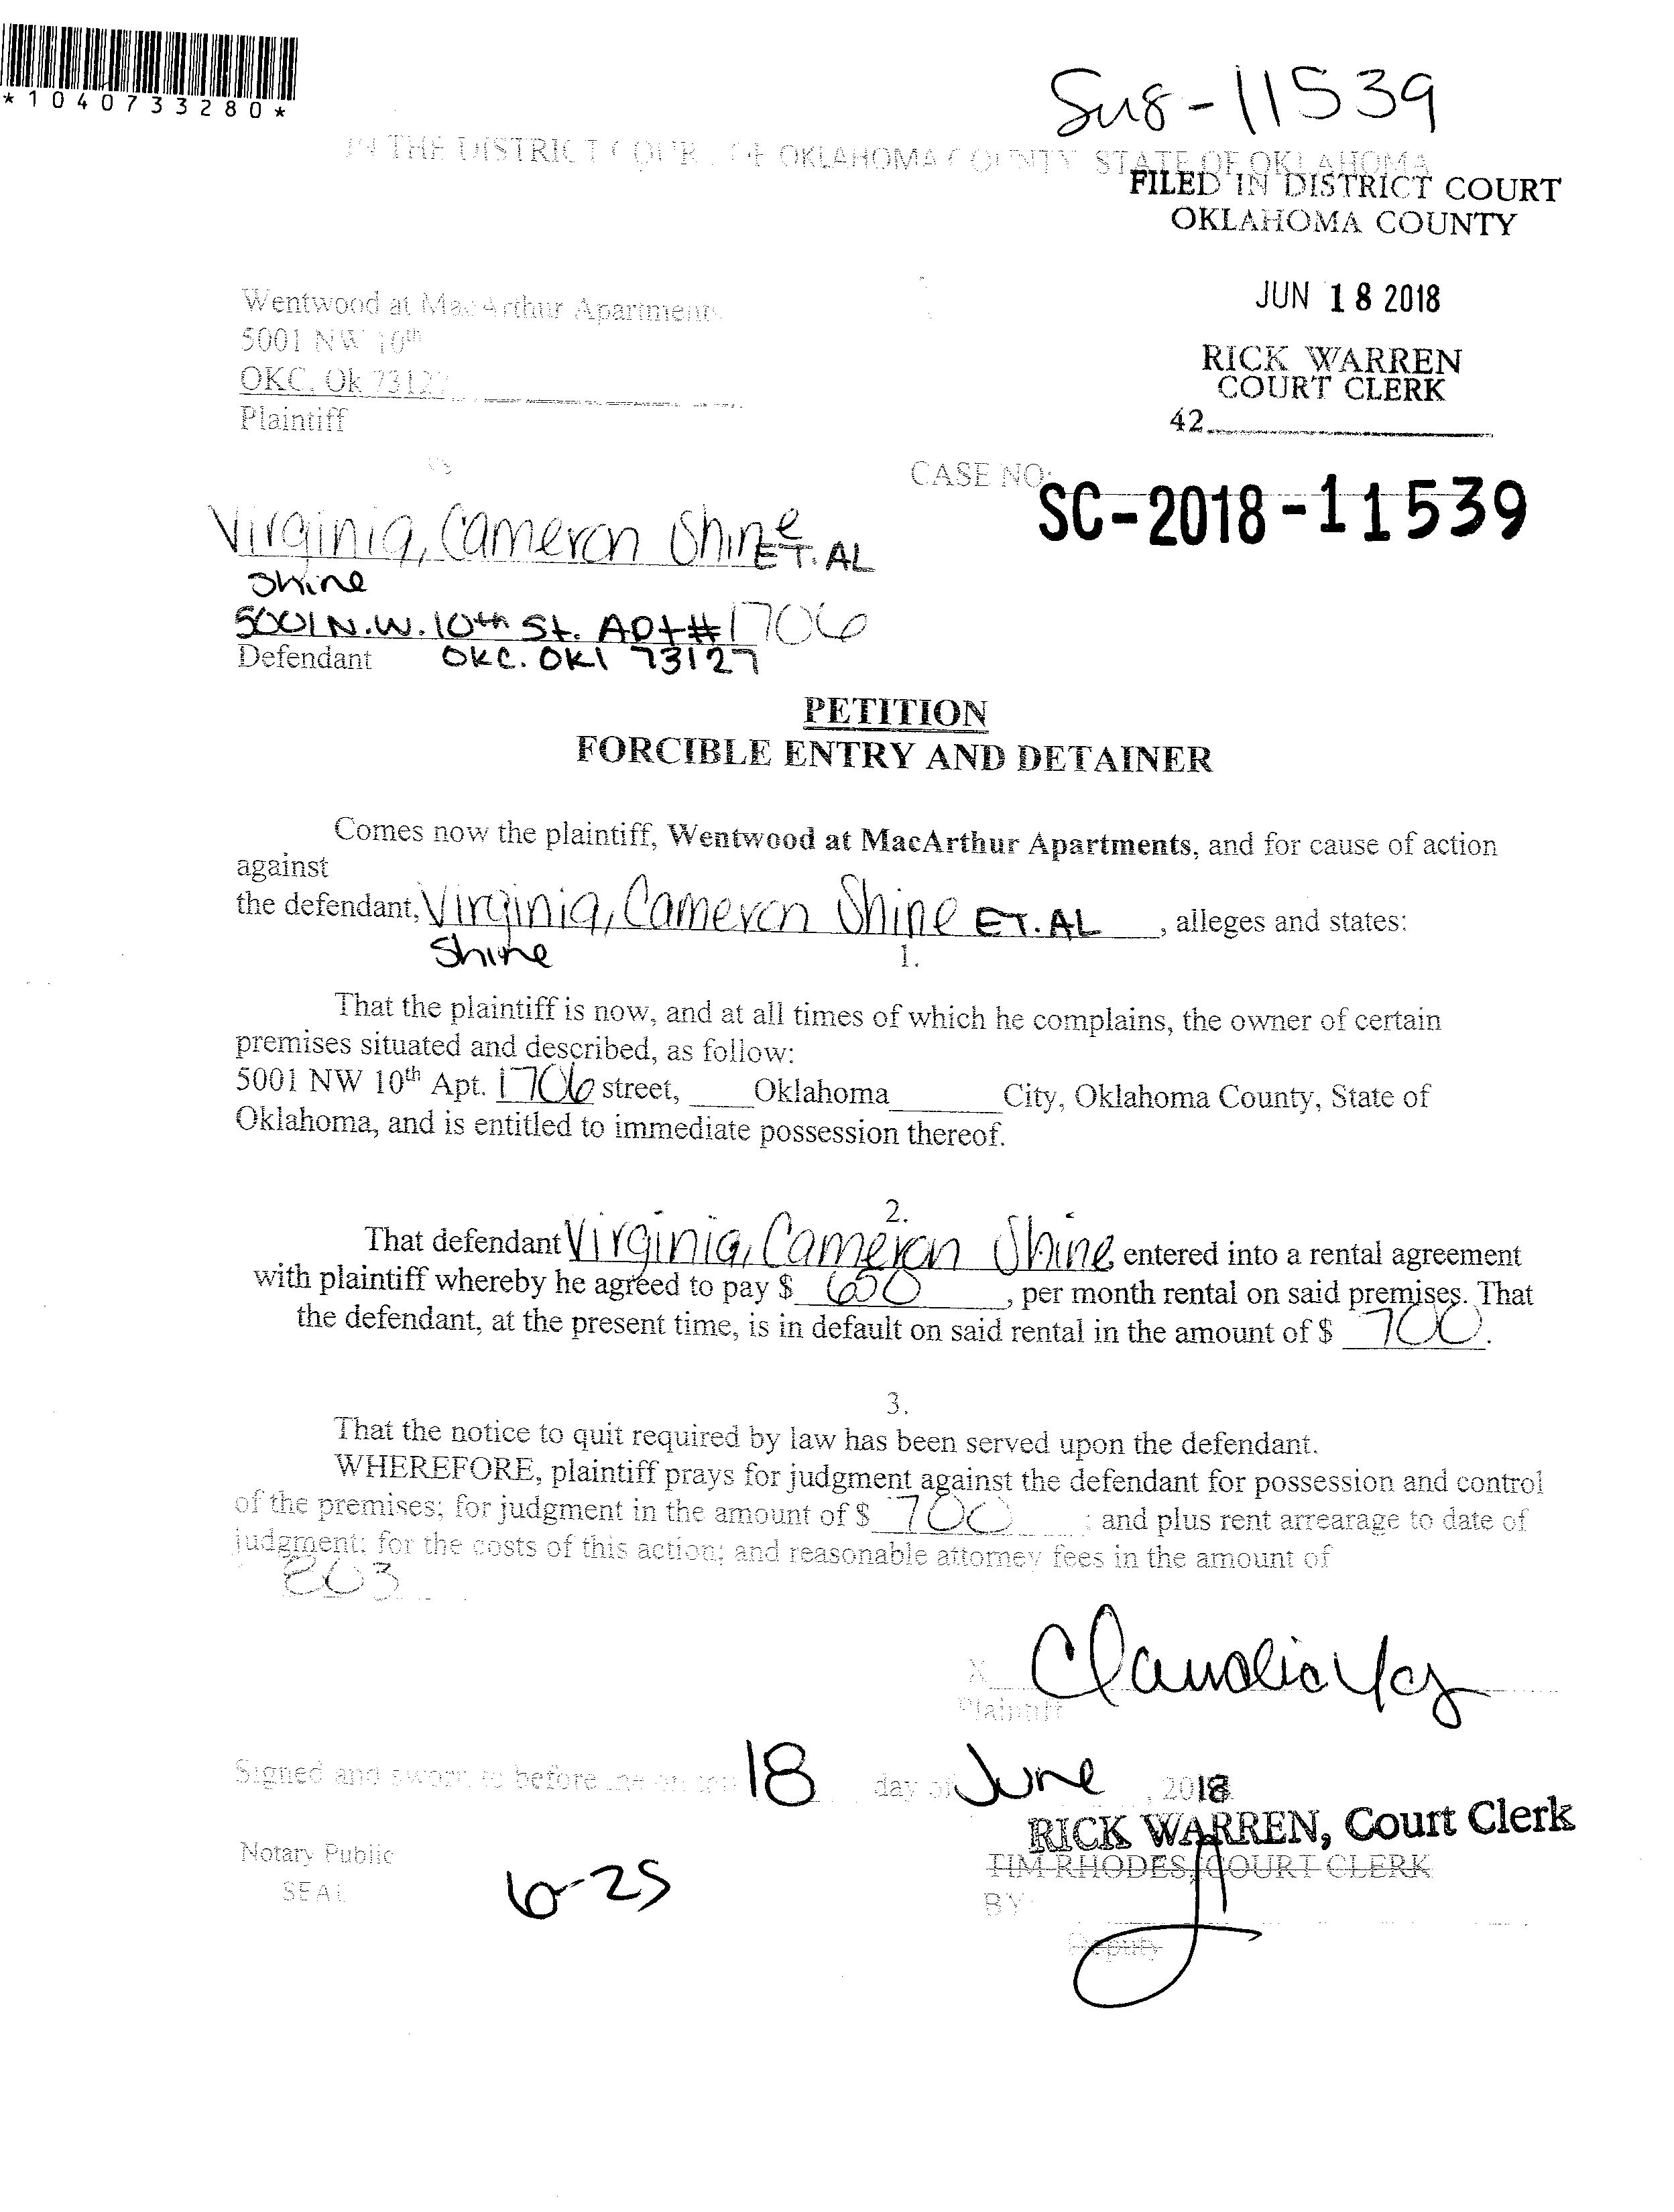 *1040733280*
-11539
IN THE DISTRICT COURT OF OKLAHOMA COUNTY STATE OF OKLAHOMA
FILED IN DISTRICT COURT
OKLAHOMA COUNTY
JUN 18 2018
RICK WARREN
COURT CLERK
42
Wentwood at MacArthur Apartments
5001 NW 10th
OKC, Ok 73127
Plaintiff
vs
CASE NO:
SC-2018-11539
Virginia, Cameron Shine ET. AL
Shine
5001 N.W. 10th St. Apt# 1706
Defendant OKC. OKl 73127
PETITION
FORCIBLE ENTRY AND DETAINER
Comes now the plaintiff, Wentwood at MacArthur Apartments, and for cause of action
against
the defendant, Virginia, Cameron Shine ET. AL , alleges and states:
Shine
1.
That the plaintiff is now, and at all times of which he complains, the owner of certain
premises situated and described, as follow:
5001 NW 10th Apt. 1706 street, Oklahoma City, Oklahoma County, State of
Oklahoma, and is entitled to immediate possession thereof.
2.
That defendant Virginia, Cameron Shine entered into a rental agreement
with plaintiff whereby he agreed to pay $ , per month rental on said premises. That
the defendant, at the present time, is in default on said rental in the amount of $ 700.
3.
That the notice to quit required by law has been served upon the defendant.
WHEREFORE, plaintiff prays for judgment against the defendant for possession and control
of the premises; for judgment in the amount of $ 700 ; and plus rent arrearage to date of
judgment; for the costs of this action; and reasonable attorney fees in the amount of
203
X
Plaintiff
Signed and sworn to before me on this 18 day of June , 2018
RICK WARREN, Court Clerk
TIM RHODES, COURT CLERK
Notary Public
SEAL
6-25
BY
Deputy